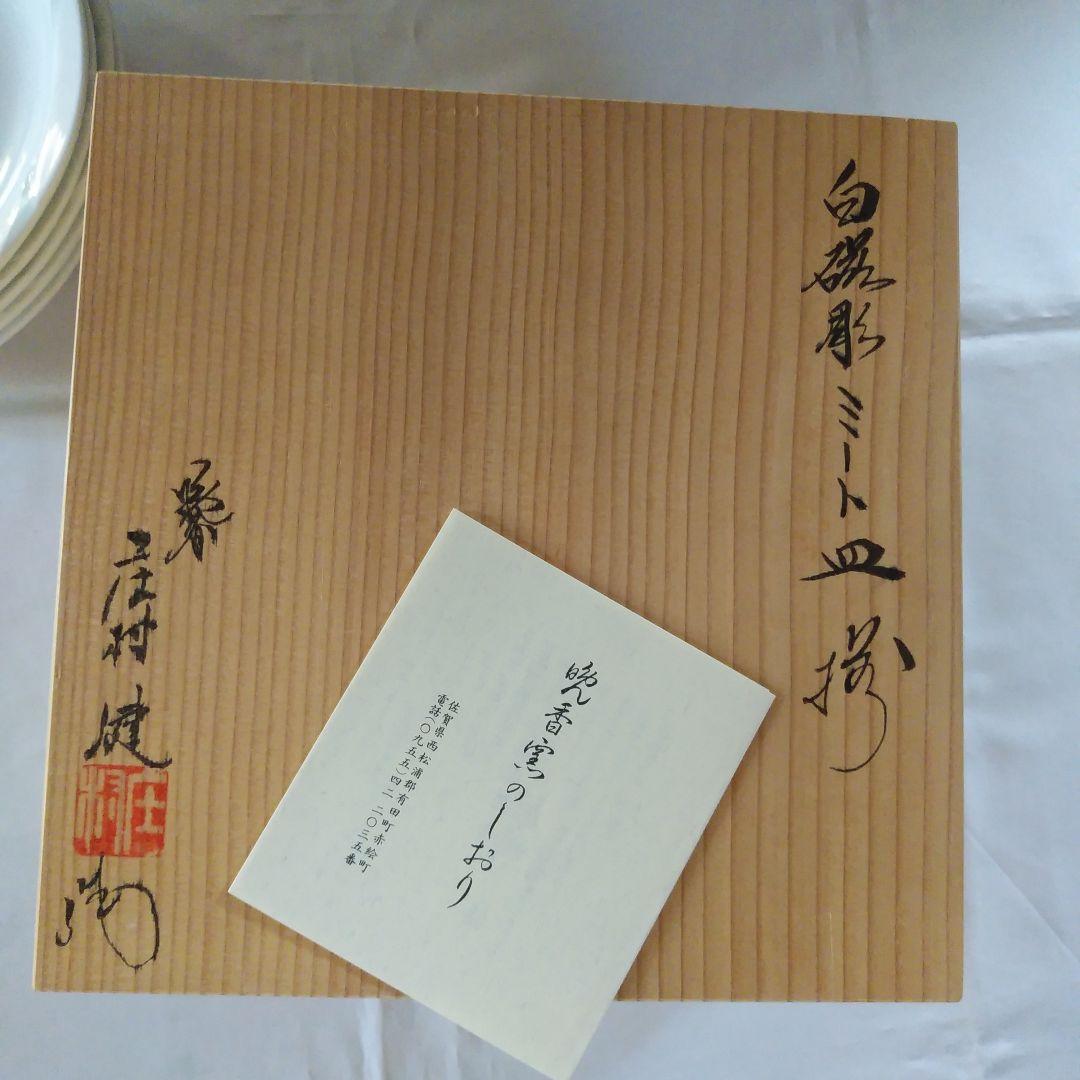 白磁彫ミート皿揃
庄村健
庄村
晩香窯のしおり
佐賀県西松浦郡有田町赤絵町
電話(〇九五五)四二 二〇三五番